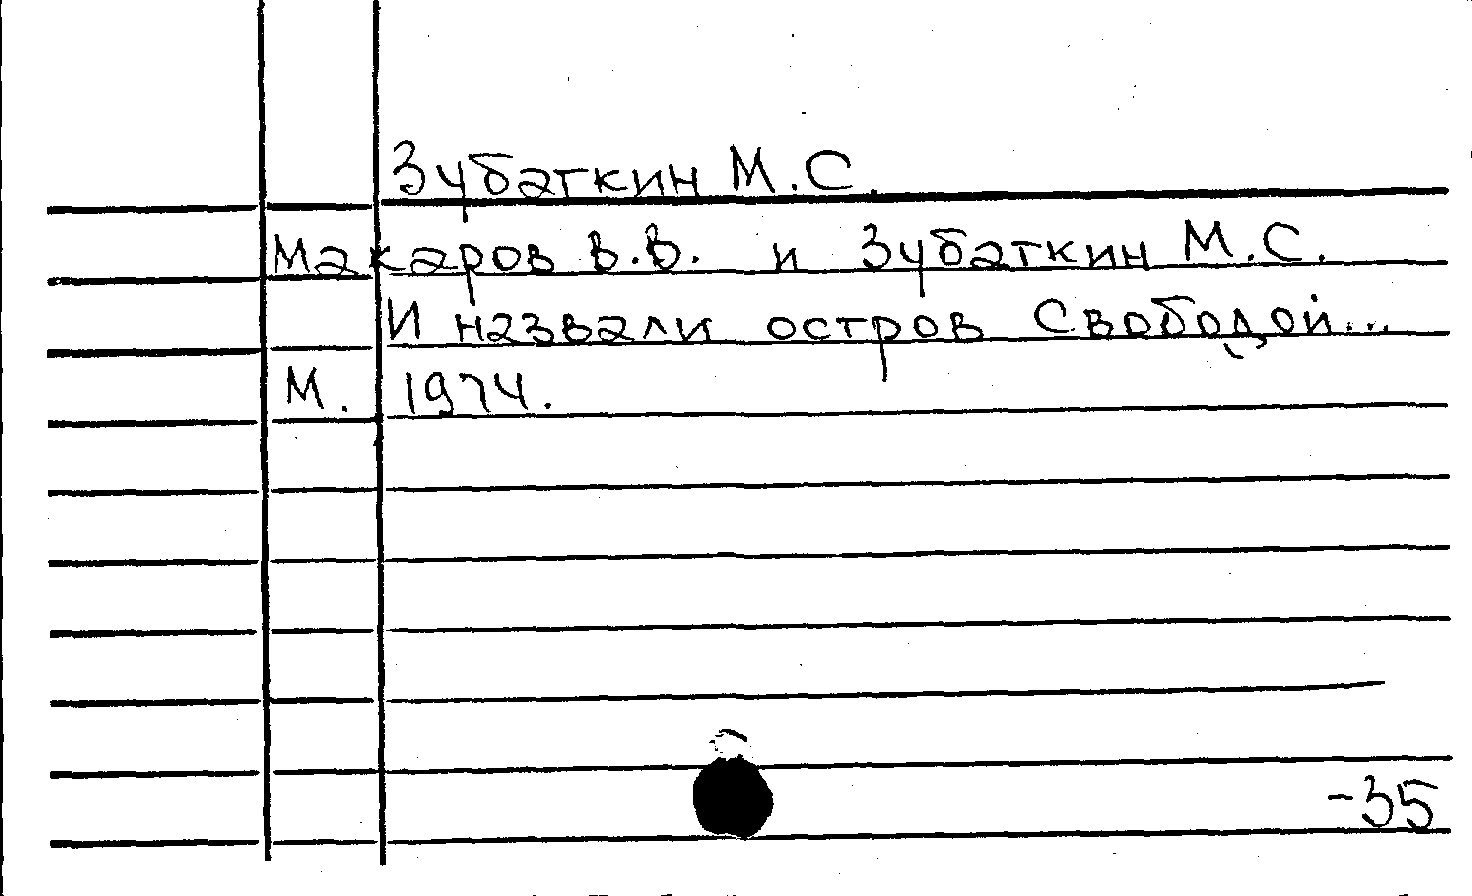 Зубаткин М.С.
Макаров В.В. и Зубаткин М.С.
И назвали остров Свободой...
М. 1974.
-35